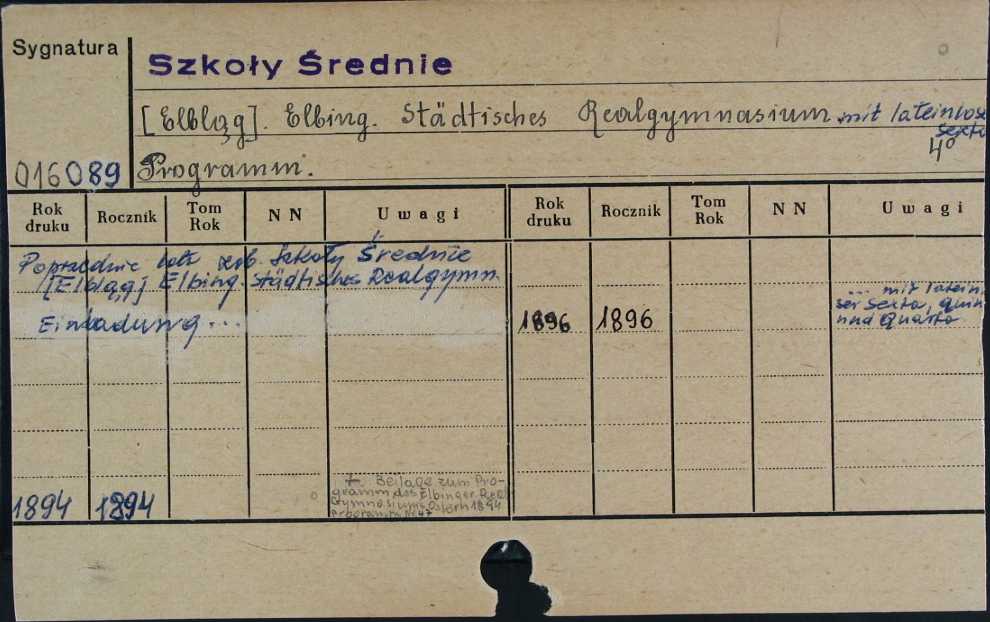 Sygnatura
Szkoły Średnie
[Elbląg]. Elbing. Städtisches Realgymnasium mit lateinlose
Sexta
4°
016089 Programm.
Rok druku Rocznik Tom Rok N N Uwagi Rok druku Rocznik Tom Rok N N Uwagi
Poprzednie zob. Szkoły Średnie
[Elbląg] Elbing. Städtisches Realgymn.
Einladung...
1896 1896 ... mit latein
ser Sexta, Quin
und Quarta
1894 1894 + Beilage zum Pro-
gramm des Elbinger Real
Gymnasiums Ostern 1894
Programm No 47